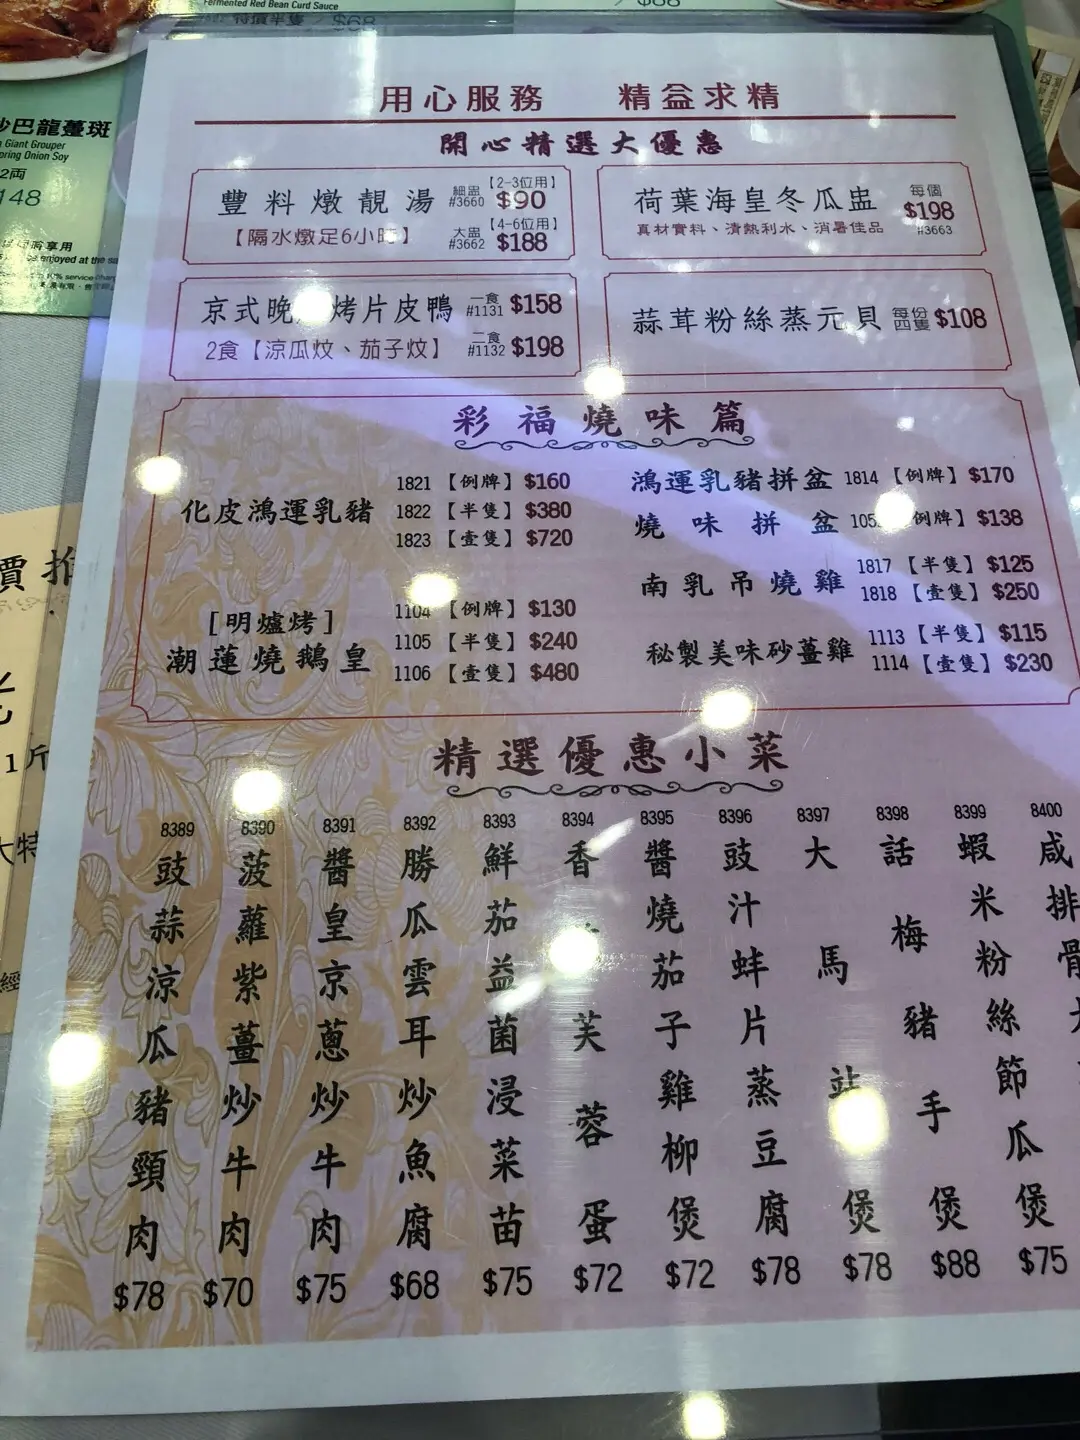 Fermented Red Bean Curd Sauce
特價半隻 $68
$88
炒巴龍躉斑
Giant Grouper
Spring Onion Soy
2両
148
用心服務 精益求精
開心精選大優惠
豐料燉靚湯 細盅 #3660 【2-3位用】 $90
【隔水燉足6小時】 大盅 #3662 【4-6位用】 $188
荷葉海皇冬瓜盅 每個 $198
真材實料、清熱利水、消暑佳品 #3663
京式 烤片皮鴨 一食 #1131 $158
2食【涼瓜炆、茄子炆】 二食 #1132 $198
蒜茸粉絲蒸元貝 每份四隻 $108
彩福燒味篇
化皮鴻運乳豬
1821 【例牌】 $160
1822 【半隻】 $380
1823 【壹隻】 $720
[明爐烤]
潮蓮燒鵝皇
1104 【例牌】 $130
1105 【半隻】 $240
1106 【壹隻】 $480
鴻運乳豬拼盆 1814 【例牌】 $170
燒味拼盆 例牌】 $138
南乳吊燒雞
1817 【半隻】 $125
1818 【壹隻】 $250
秘製美味砂薑雞
1113 【半隻】 $115
1114 【壹隻】 $230
精選優惠小菜
8389 豉蒜涼瓜豬頸肉 $78
8390 菠蘿紫薑炒牛肉 $70
8391 醬皇京蔥炒牛肉 $75
8392 勝瓜雲耳炒魚腐 $68
8393 鮮茄益菌浸菜苗 $75
8394 香 芙蓉蛋 $72
8395 醬燒茄子雞柳煲 $72
8396 豉汁蚌片蒸豆腐 $78
8397 大馬站煲 $78
8398 話梅豬手煲 $88
8399 蝦米粉絲節瓜煲 $75
8400 咸排骨